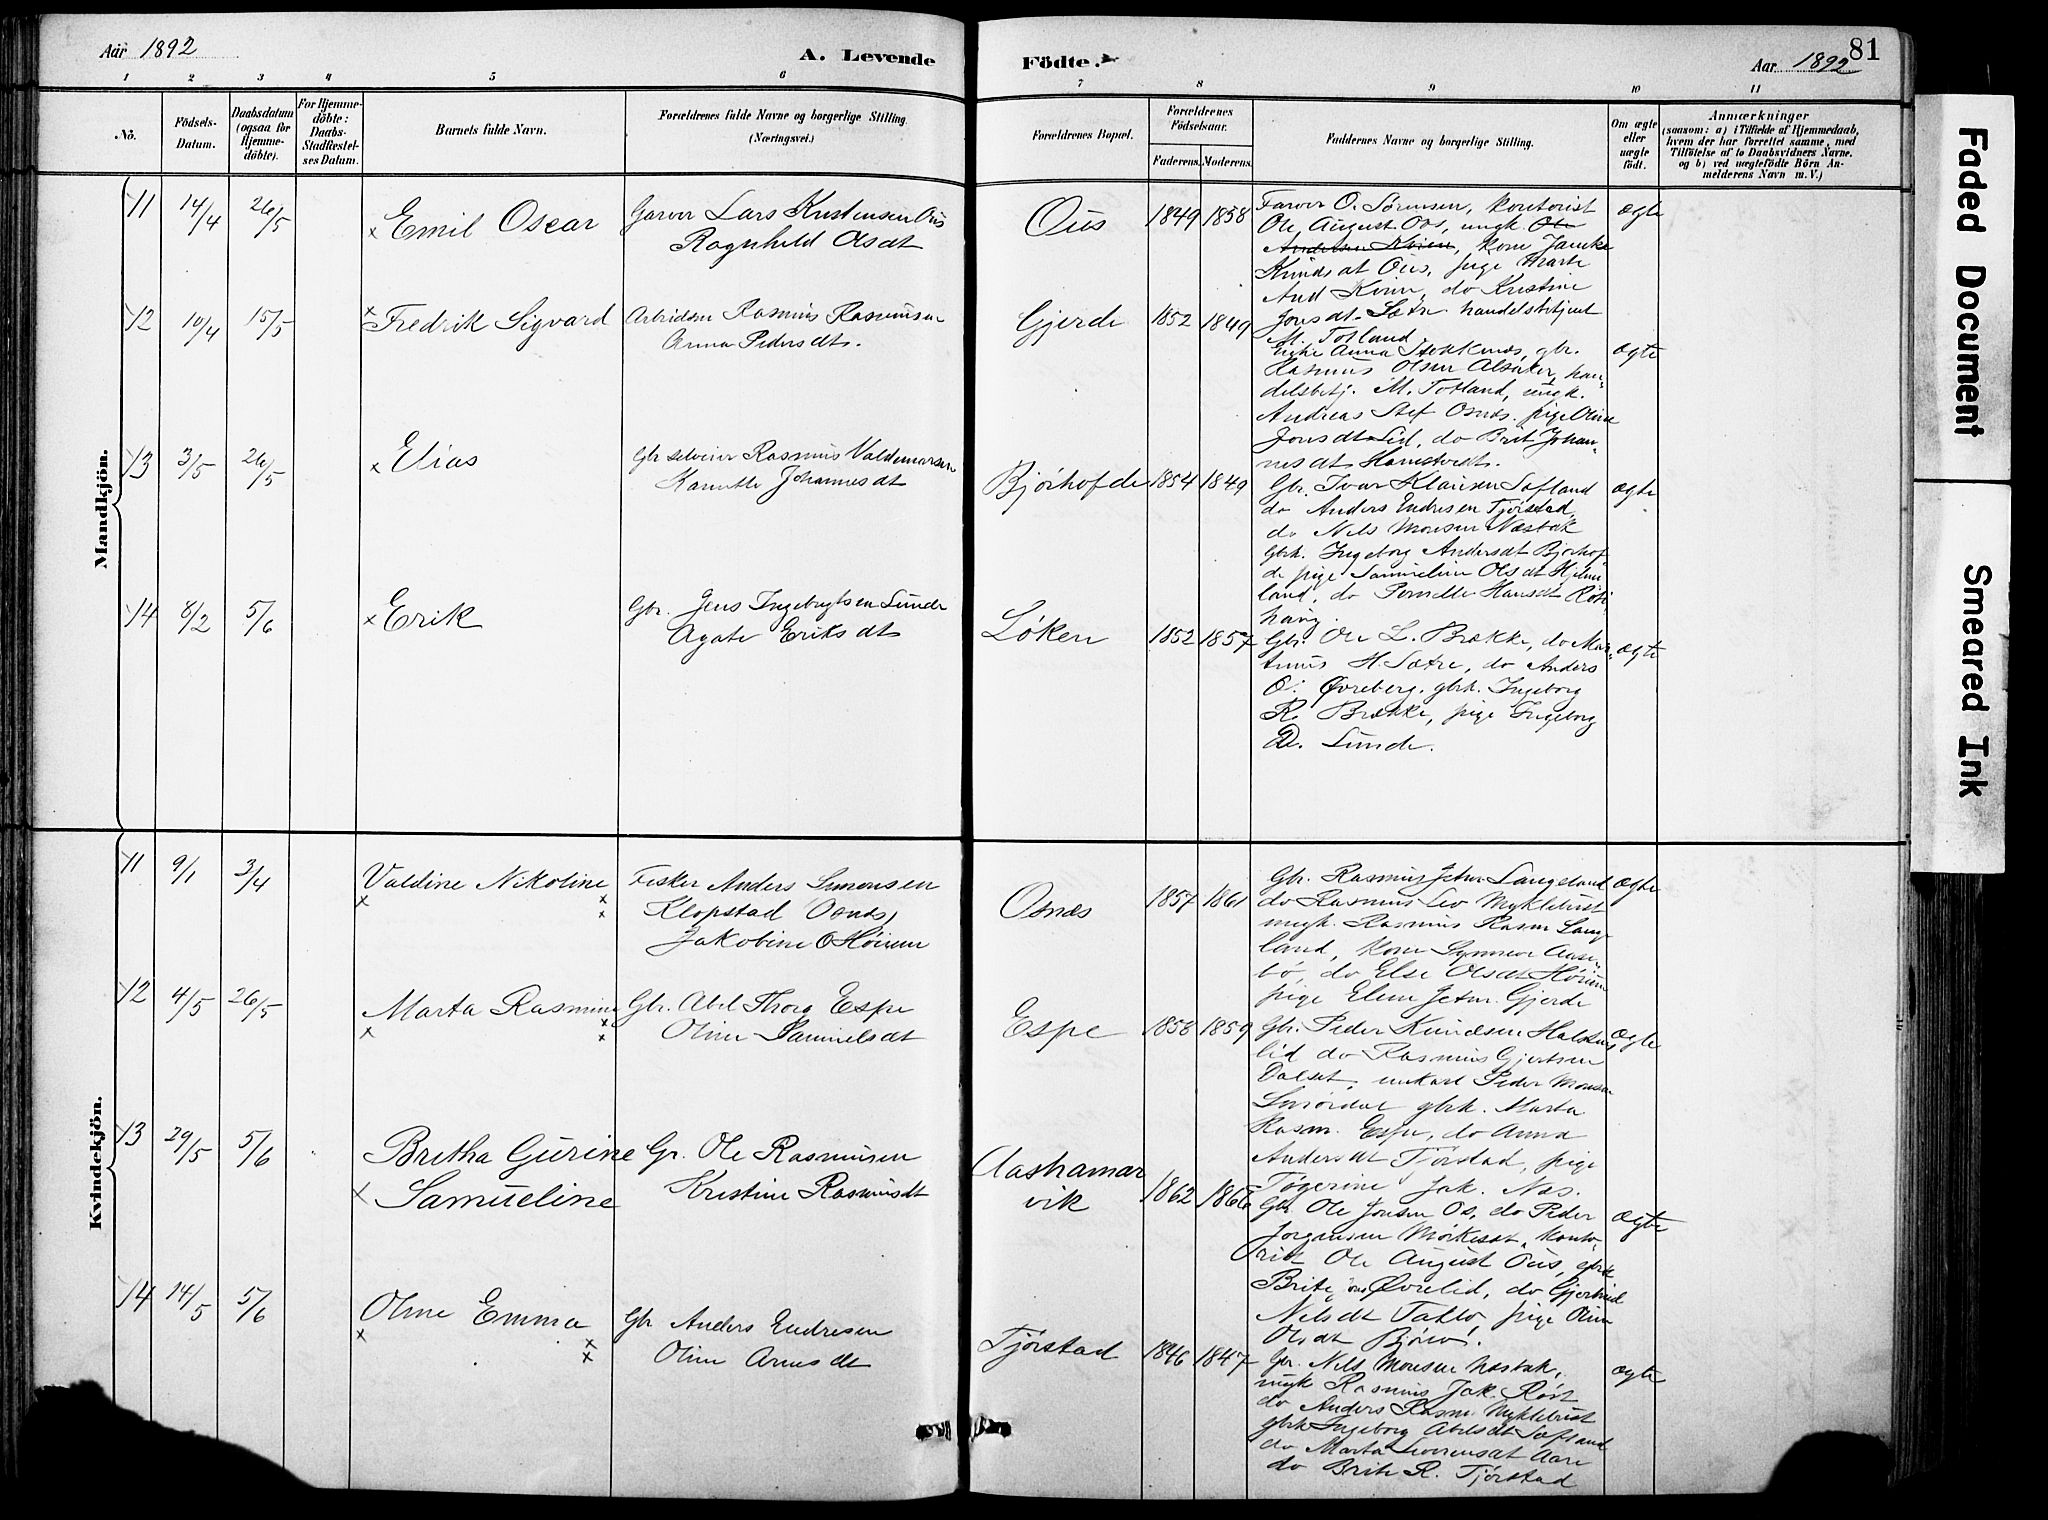 Aar 1892
A. Levende
Födte.
Aar 1892
81
1 2 3 4 5 6 7 8 9 10 11
No.
Födsels-
Datum.
Daabsdatum
(ogsaa for
Hjemme-
döbte).
For Hjemme-
döbte:
Daabs-
Stadfæstel-
ses Datum.
Barnets fulde Navn.
Forældrenes fulde Navne og borgerlige Stilling
(Næringsvei.)
Forældrenes Bopæl.
Forældrenes
Födselsaar.
Faderens. Moderens.
Faddernes Navne og borgerlige Stilling.
Om ægte
eller
uægte
födt.
Anmærkninger
(saasom: a) i Tilfælde af Hjemmedaab,
hvem der har forrettet samme, med
Tilföielse af to Daabsvidners Navne.
og b) ved uægtefödte Börn An-
melderens Navn m. V.)
Mandkjön.
11 14/4 26/5 Emil Oscar
Garver Lars Kristensen Ous
Ragnhild Olsdt
Ous 1849 1858
Farver O. Sørensen, kontorist
Ole August Ous, ungk. Ole
kone Jamke
Knudsdt Ous, pige Marte
And do Kristine
Jonsdt Sætre handelsbetjent
M. Totland
ægte
12 10/4 15/5 Fredrik Sigvard
Arbeidsm Rasmus Rasmussen
Anna Pedersdt.
Gjerde 1852 1849
Enke Anna Stokknes, gbr.
Rasmus Olsen Alsaker, han-
delsbetj. M. Totland, ungk.
Andreas Stef Osnes. pige Oline
Jonsdt Lid, do Brit Johan-
nesdt
ægte
13 3/5 26/5 Elias
Gbr selveier Rasmus Valdemarsen
Johannesdt
Bjørhofde 1854 1849
Gbr. Ivar Klausen Sætland
do Anders Endresen Tjørstad,
do Nels Monsen Næsbak
gbrk. Ingeborg Andersdt Bjørhof
de pige Samueline Olsdt Hjelm
land, do Pernille Hansdt
haug.
ægte
14 8/2 5/6 Erik
Gbr. Jens Ingebrigtsen Lunde
Agate Eriksdt
Løken 1852 1857
Gbr. Ole L. Brække, do Mar-
tinus H. Sætre, do Anders
O. Øvreberg. gbrk. Ingeborg
R. Brække, pige Ingeborg
D. Lunde.
ægte
Kvindekjön.
11 9/1 3/4 Valdine Nikoline
Fisker Anders Simonsen
Klopstad (Osnes)
Jakobine O Høinæs
Osnæs 1857 1861
Gbr. Rasmus Jetm Langeland
do Rasmus Myklebust
ungk. Rasmus Rasm Lange
land, kone Synneve Aase-
bø, do Else Olsdt
pige Elen Jetm. Gjerde
ægte
12 4/5 26/5 Marta Rasmine
Gbr. Abel Thorg Espe
Oline Samuelsdt
Espe 1858 1859
Gbr. Peder Knudsen
lid do Rasmus Gjertsen
Dalset, unkarl Peder Monsen
Smørdal gbrk. Marta
Rasm. Espe, do Anna
Andersdt Tjørstad, pige
Jak. Næs.
ægte
13 29/5 5/6 Britha Gurine
Samueline
Gr. Ole Rasmussen
Kristine Rasmusdt
Aashamar
vik 1862 1866
Gbr Ole Jonsen Os, do Peder
Jørgensen Mørkesdt, konto-
rist Ole August Ous, gbrk
Brite Øvrelid, do Gjertrud
Nelsdt Taklo, pige Oline
Olsdt
ægte
14 14/5 5/6 Oline Emma
Gbr Anders Endresen
Oline Arnesdt
Tjørstad 1846 1847
Gbr. Nils Monsen Næsbak,
ungk Rasmus Jak. Røst
do Anders Rasm. Myklebust
gbrk Ingeborg Abelsdt Sætland
do Marta Aare
do Brite R. Tjørstad
ægte
Faded Document
Smeared Ink